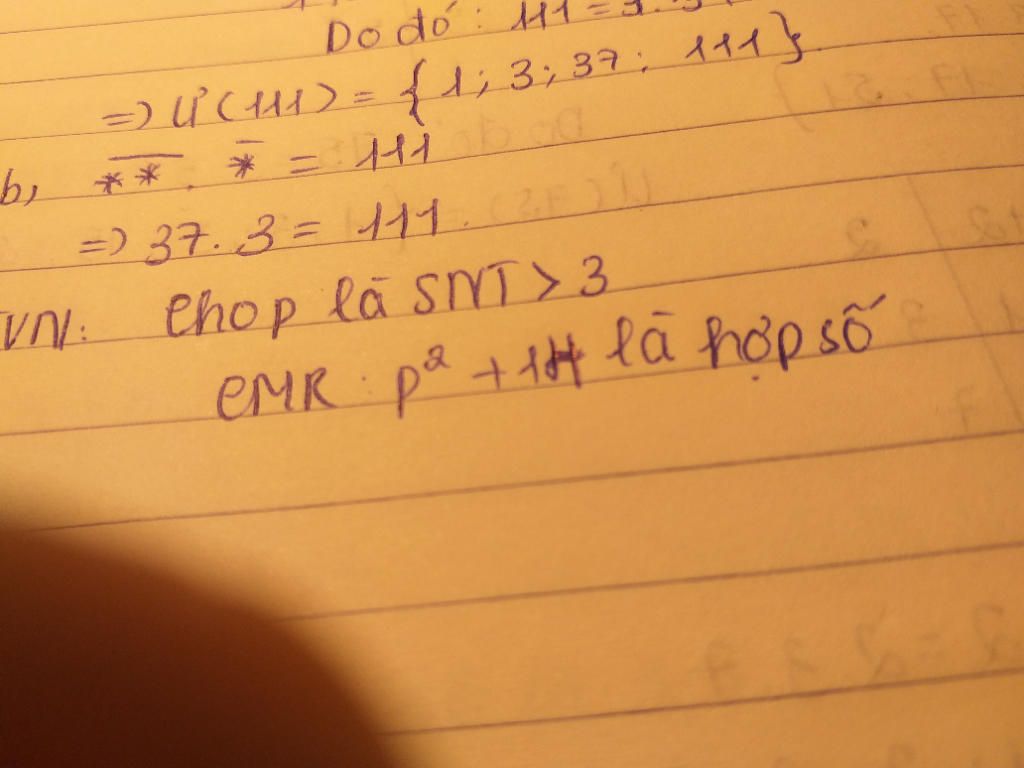 Do đó: 111 = 3.
=> Ư(111) = {1; 3; 37; 111}
b, ** . * = 111
=> 37. 3 = 111.
VN: Cho p là SNT > 3
CMR: p² + là hợp số